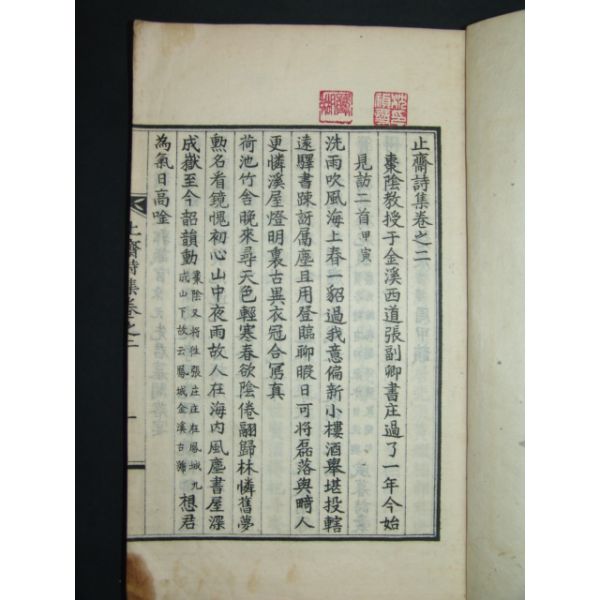 止齋詩集卷之二
棗陰教授于金溪西道張副卿書庄過了一年今始
見訪二首甲寅
洗雨吹風海上春一貂過我意偏新小樓酒擧堪投轄
遠驛書踈訝屬塵且用登臨聊暇日可將磊落與時人
更憐溪屋燈明裏古異衣冠合寫真
荷池竹舍晚來尋天色輕寒春欲陰倦翮歸林憐舊夢
勲名看鏡愧初心山中夜雨故人在海內風塵書屋深
成嶽至今韶韻動棗陰又將往張庄庄在鳳城九成山下故云鳳城金溪古號想君
為氣日高唫
止齋詩集卷之二
一